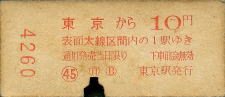 4260
東京から 10円
表面太線区間内の1駅ゆき
通用発売当日限り 下車前途無効
㊺ B 東京駅発行